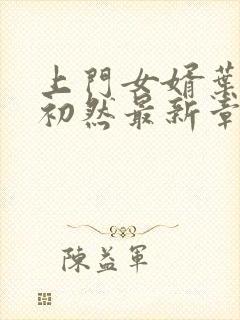 上門女婿葉
初然最新章
陳益軍